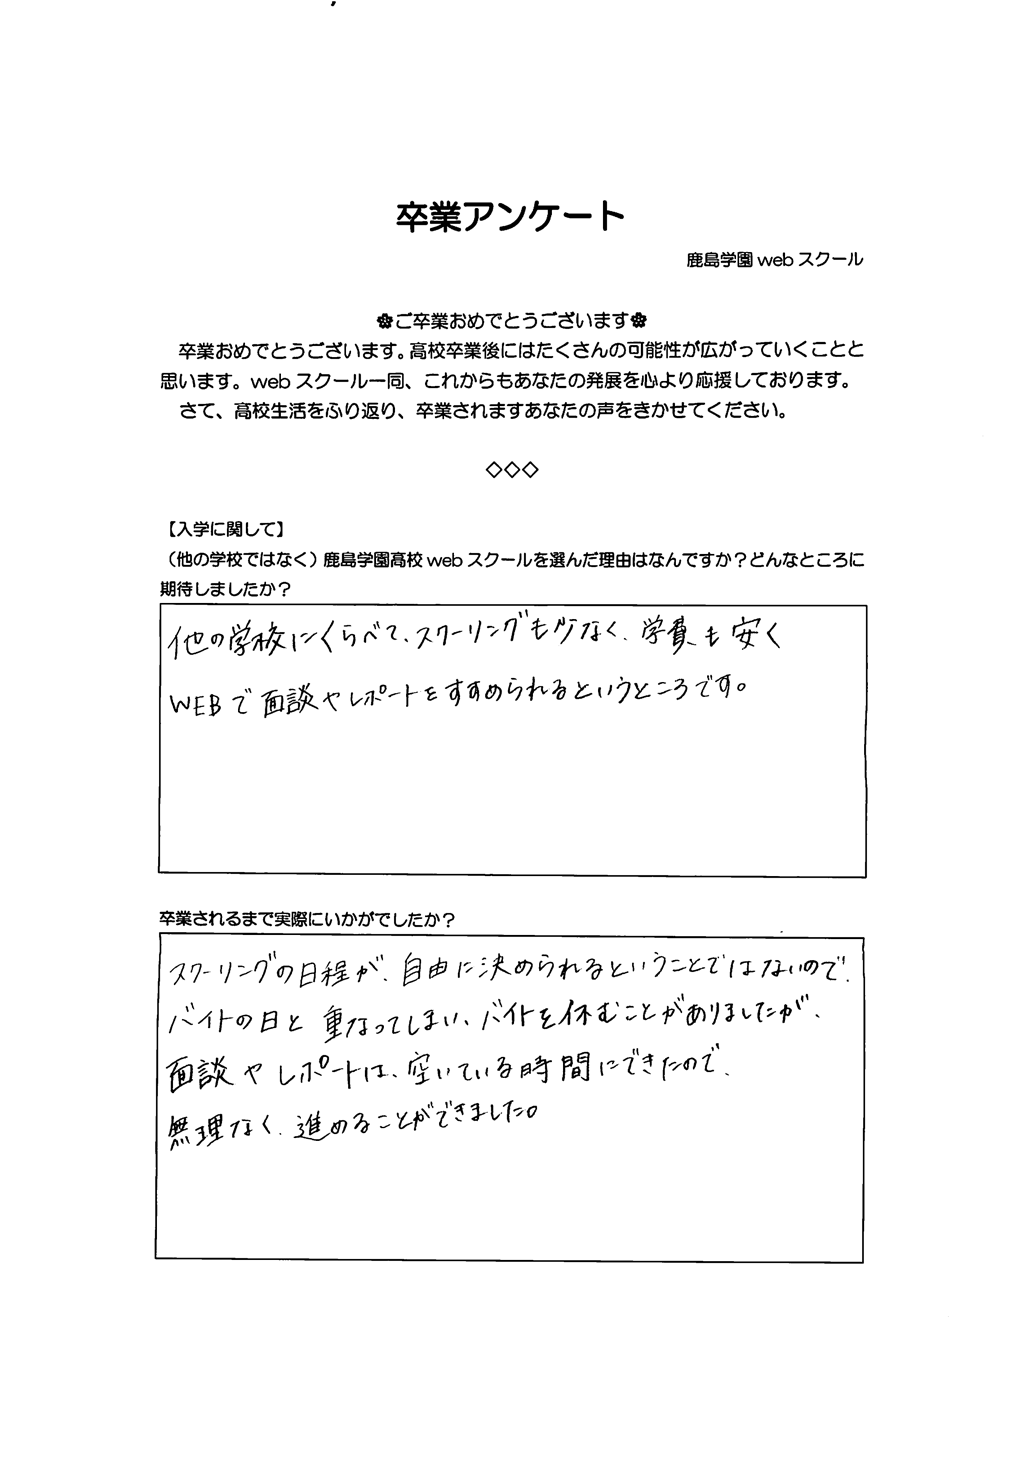 卒業アンケート
鹿島学園 web スクール
✿ご卒業おめでとうございます✿
卒業おめでとうございます。高校卒業後にはたくさんの可能性が広がっていくことと
思います。web スクール一同、これからもあなたの発展を心より応援しております。
さて、高校生活をふり返り、卒業されますあなたの声をきかせてください。
◇◇◇
【入学に関して】
（他の学校ではなく）鹿島学園高校 web スクールを選んだ理由はなんですか？どんなところに
期待しましたか？
他の学校にくらべて、スクーリングも少なく、学費も安く
WEBで面談やレポートをすすめられるというところです。
卒業されるまで実際にいかがでしたか？
スクーリングの日程が、自由に決められるということではないので、
バイトの日と重なってしまい、バイトを休むことがありましたが、
面談やレポートは、空いている時間にできたので、
無理なく、進めることができました。